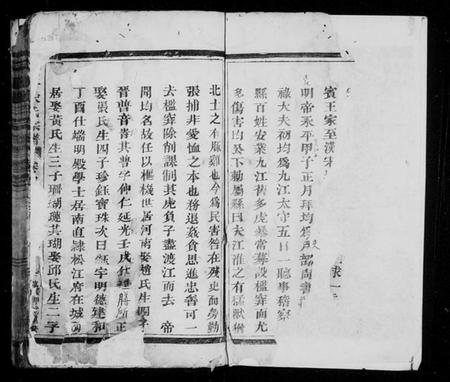 賓王家至漢宋
明帝永平甲子正月拜均爲
祿大夫初均爲九江太守五日一聽事稽察
縣百姓安業九江舊多虎暴常募設檻穽而尤
多傷害均到下勅屬縣曰夫江淮之有猛獸猶
北土之有雞豚也今爲民害咎在殘吏而勞勤
張捕非憂恤之本也務退姦貪思進忠善可一
去檻穽除削課制其虎負子盡渡江而去 帝
聞均名故任以樞機世居河南娶趙氏生四子
晉普音者其普字仲仁延光壬戌仕
娶張氏生四子珍鈺寶珠次曰鈺字明德建和
丁酉仕端明殿學士居南直隸松江府在城
居娶黃氏生三子珊瑚璉其瑚娶邱氏生二子